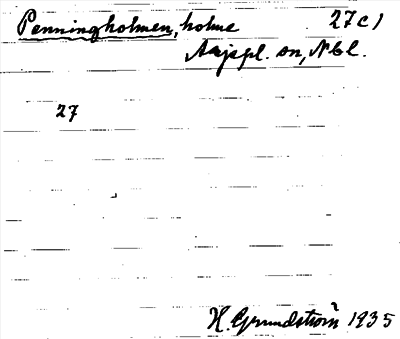 Penningholmen, holme 27c)
Arjepl. sn, Nbl.
27
H. Grundström 1935